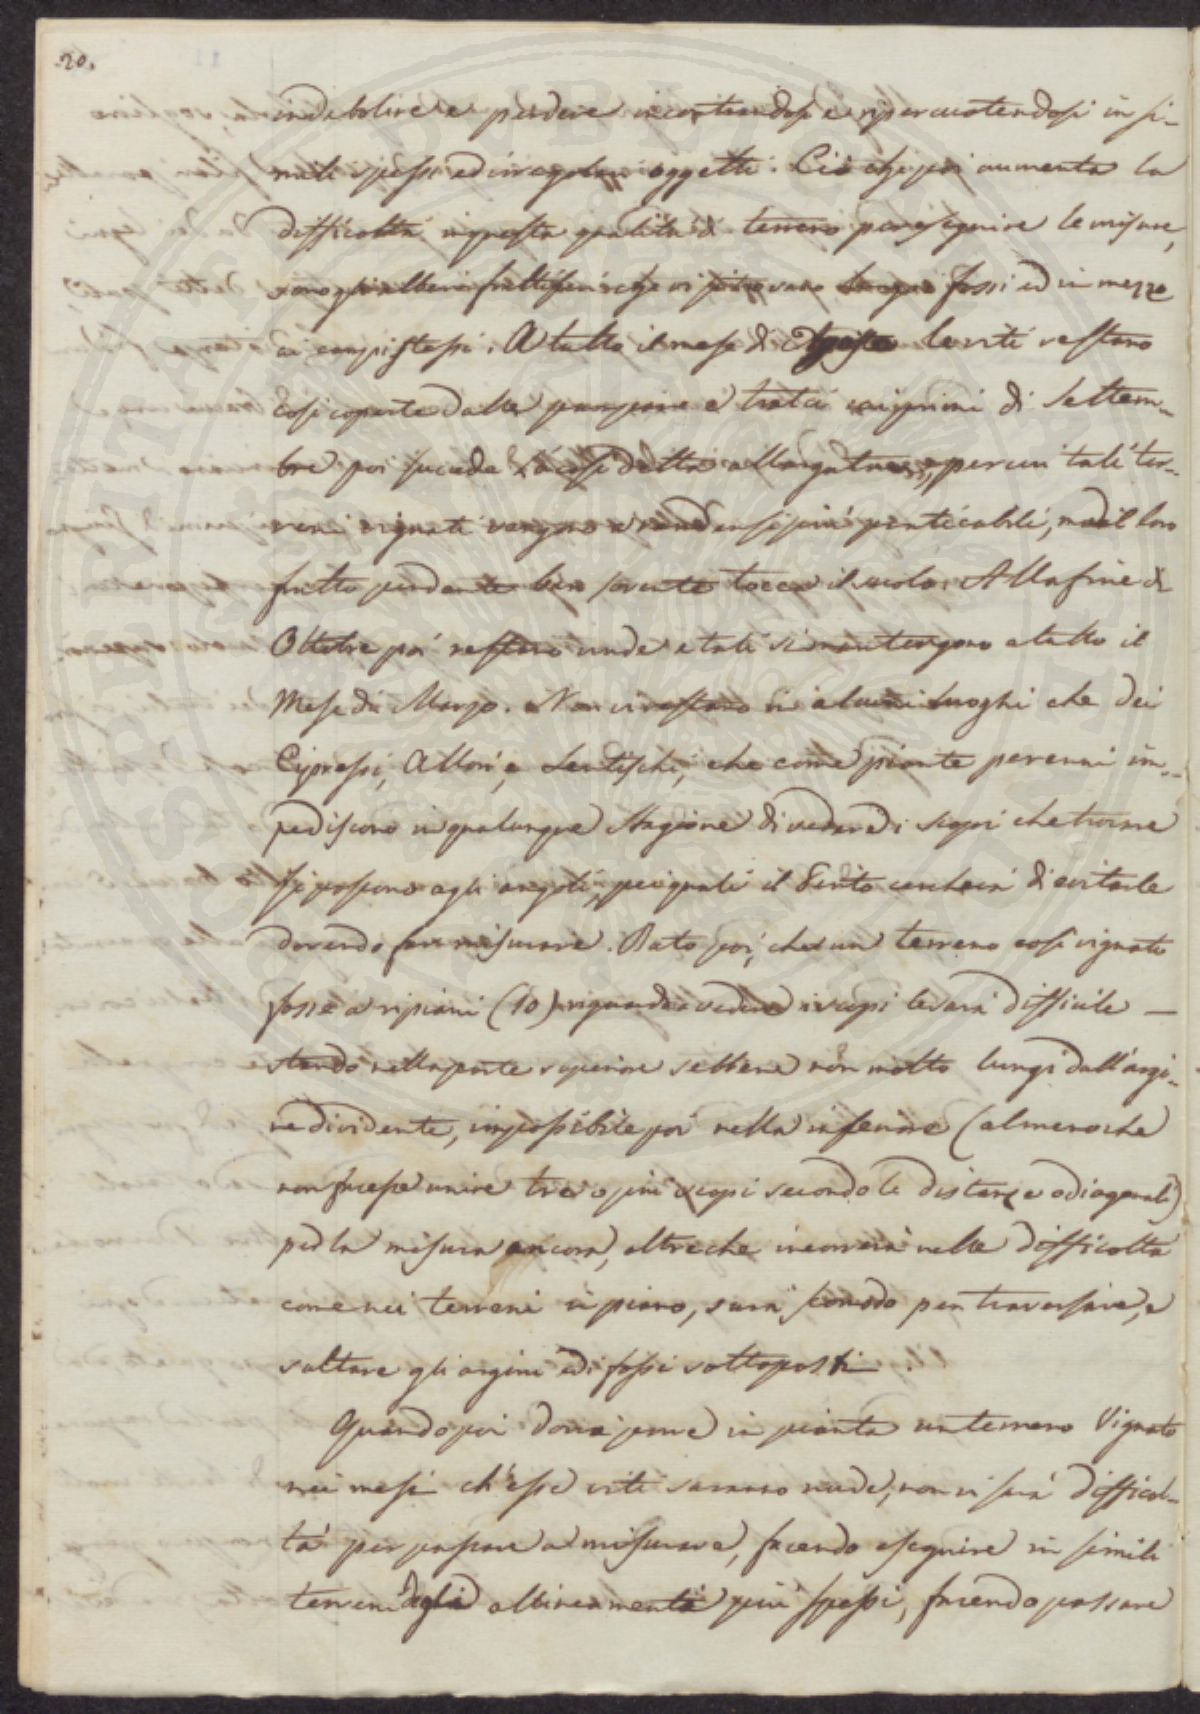 20.
indebolire e perdere incontrandosi e ripercuotendosi in si-
mili spessi ed irregolari oggetti. Ciò che poi aumenta la
difficoltà in questa qualità di terreno per eseguire le misure,
sono gli alberi fruttiferi che vi si trovano lungo i fossi ed in mezzo
ai campi stessi. A tutto il mese di Agosto le viti restano
così coperte dalle pampane e tralci, ai primi di Settem-
bre poi succede la così detta allargatura, per cui tali ter-
reni vignati vengono a rendersi più praticabili, ma il loro
frutto pendente ben sovente tocca il suolo. Alla fine di
Ottobre poi restano nude e tali si mantengono a tutto il
Mese di Marzo. Non vi restano in alcuni luoghi che dei
Cipressi, Allori, e Lentischi, che come piante perenni im-
pediscono in qualunque Stagione di vedere i scopi che trovare
si possono agli angoli, pei quali il Perito cercherà di evitarle
dovendo far misurare. Dato poi, che un terreno così vignato
fosse a ripiani (10) riguardo a vedere i scopi le sarà difficile —
stando nella parte superiore sebbene non molto lungi dall'argi-
ne dividente, impossibile poi nella inferiore (almeno che
non facesse unire tre o più scopi secondo le distanze o diagonali)
per la misura ancora, oltre che incorrerà nelle difficoltà
come nei terreni in piano, sarà scomodo per traversare, e
saltare gli argini ed i fossi sottoposti.
Quando poi dovrà porre in pianta un terreno Vignato
nei mesi ch'esse viti saranno nude, non vi sarà difficol-
tà per passare a misurare, facendo eseguire in simili
terreni degli allineamenti più spessi, facendo passare